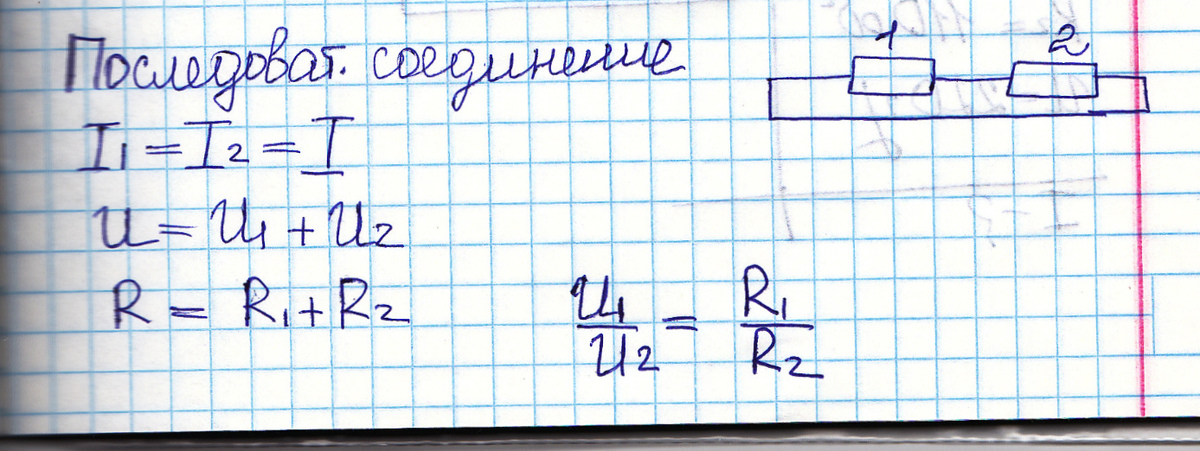 Последоват. соединение
1 2
I₁ = I₂ = I
U = U₁ + U₂
R = R₁ + R₂
U₁/U₂ = R₁/R₂